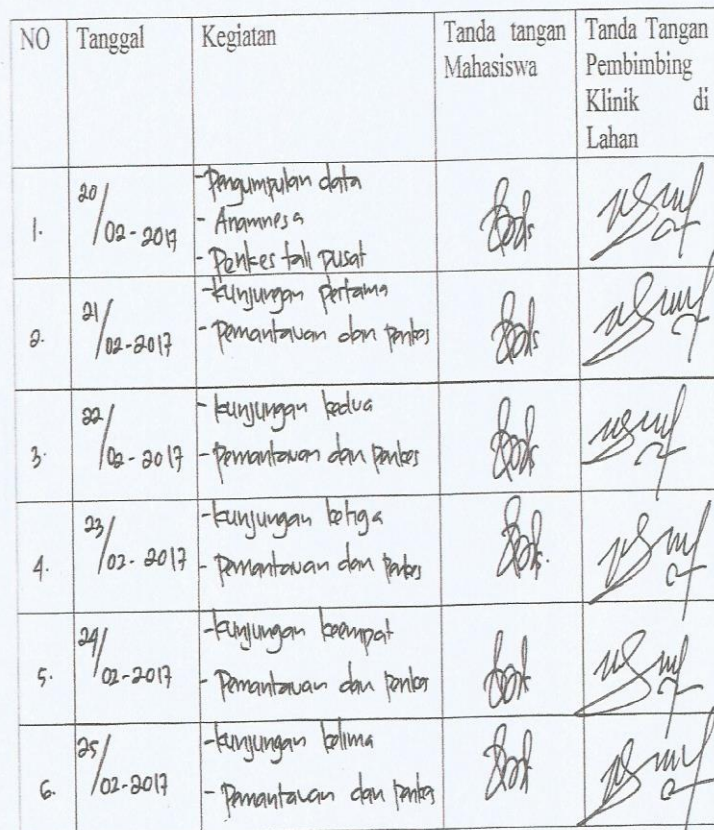 NO Tanggal Kegiatan Tanda tangan Tanda Tangan
Mahasiswa Pembimbing
Klinik di
Lahan
1. 20/02-2017
- Pengumpulan data
- Anamnesa
- Penkes tali pusat
2. 21/02-2017
- kunjungan pertama
- Pemantauan dan penkes
3. 22/02-2017
- kunjungan kedua
- Pemantauan dan penkes
4. 23/02-2017
- kunjungan ketiga
- Pemantauan dan penkes
5. 24/02-2017
- kunjungan keempat
- Pemantauan dan penkes
6. 25/02-2017
- kunjungan kelima
- Pemantauan dan penkes